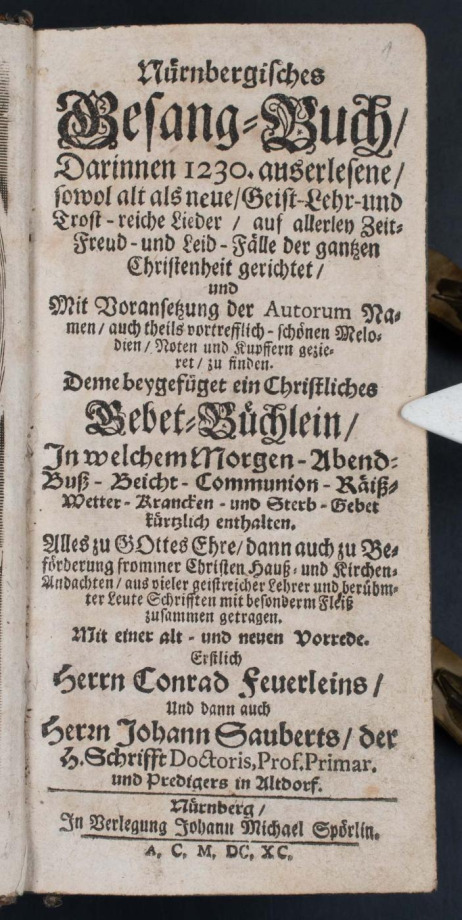 1
Nürnbergisches
Gesang-Buch/
Darinnen 1230. auserlesene/
sowol alt als neue/Geist-Lehr-und
Trost-reiche Lieder / auf allerley Zeit-
Freud-und Leid-Fälle der gantzen
Christenheit gerichtet/
und
Mit Voransetzung der Autorum Na-
men/auch theils vortrefflich-schönen Melo-
dien/Noten und Kupffern gezie-
ret/zu finden.
Deme beygefüget ein Christliches
Gebet-Büchlein/
In welchem Morgen-Abend-
Buß-Beicht-Communion-Räiß-
Wetter-Krancken-und Sterb-Gebet
kürtzlich enthalten.
Alles zu GOttes Ehre/dann auch zu Be-
förderung frommer Christen Hauß-und Kirchen-
Andachten/aus vieler geistreicher Lehrer und berühm-
ter Leute Schrifften mit besonderm Fleiß
zusammen getragen.
Mit einer alt-und neuen Vorrede.
Erstlich
Herrn Conrad Feuerleins/
Und dann auch
Herrn Johann Sauberts/der
H. Schrifft Doctoris, Prof. Primar.
und Predigers in Altdorf.
Nürnberg/
In Verlegung Johann Michael Spörlin.
A. C. M. DC. XC.